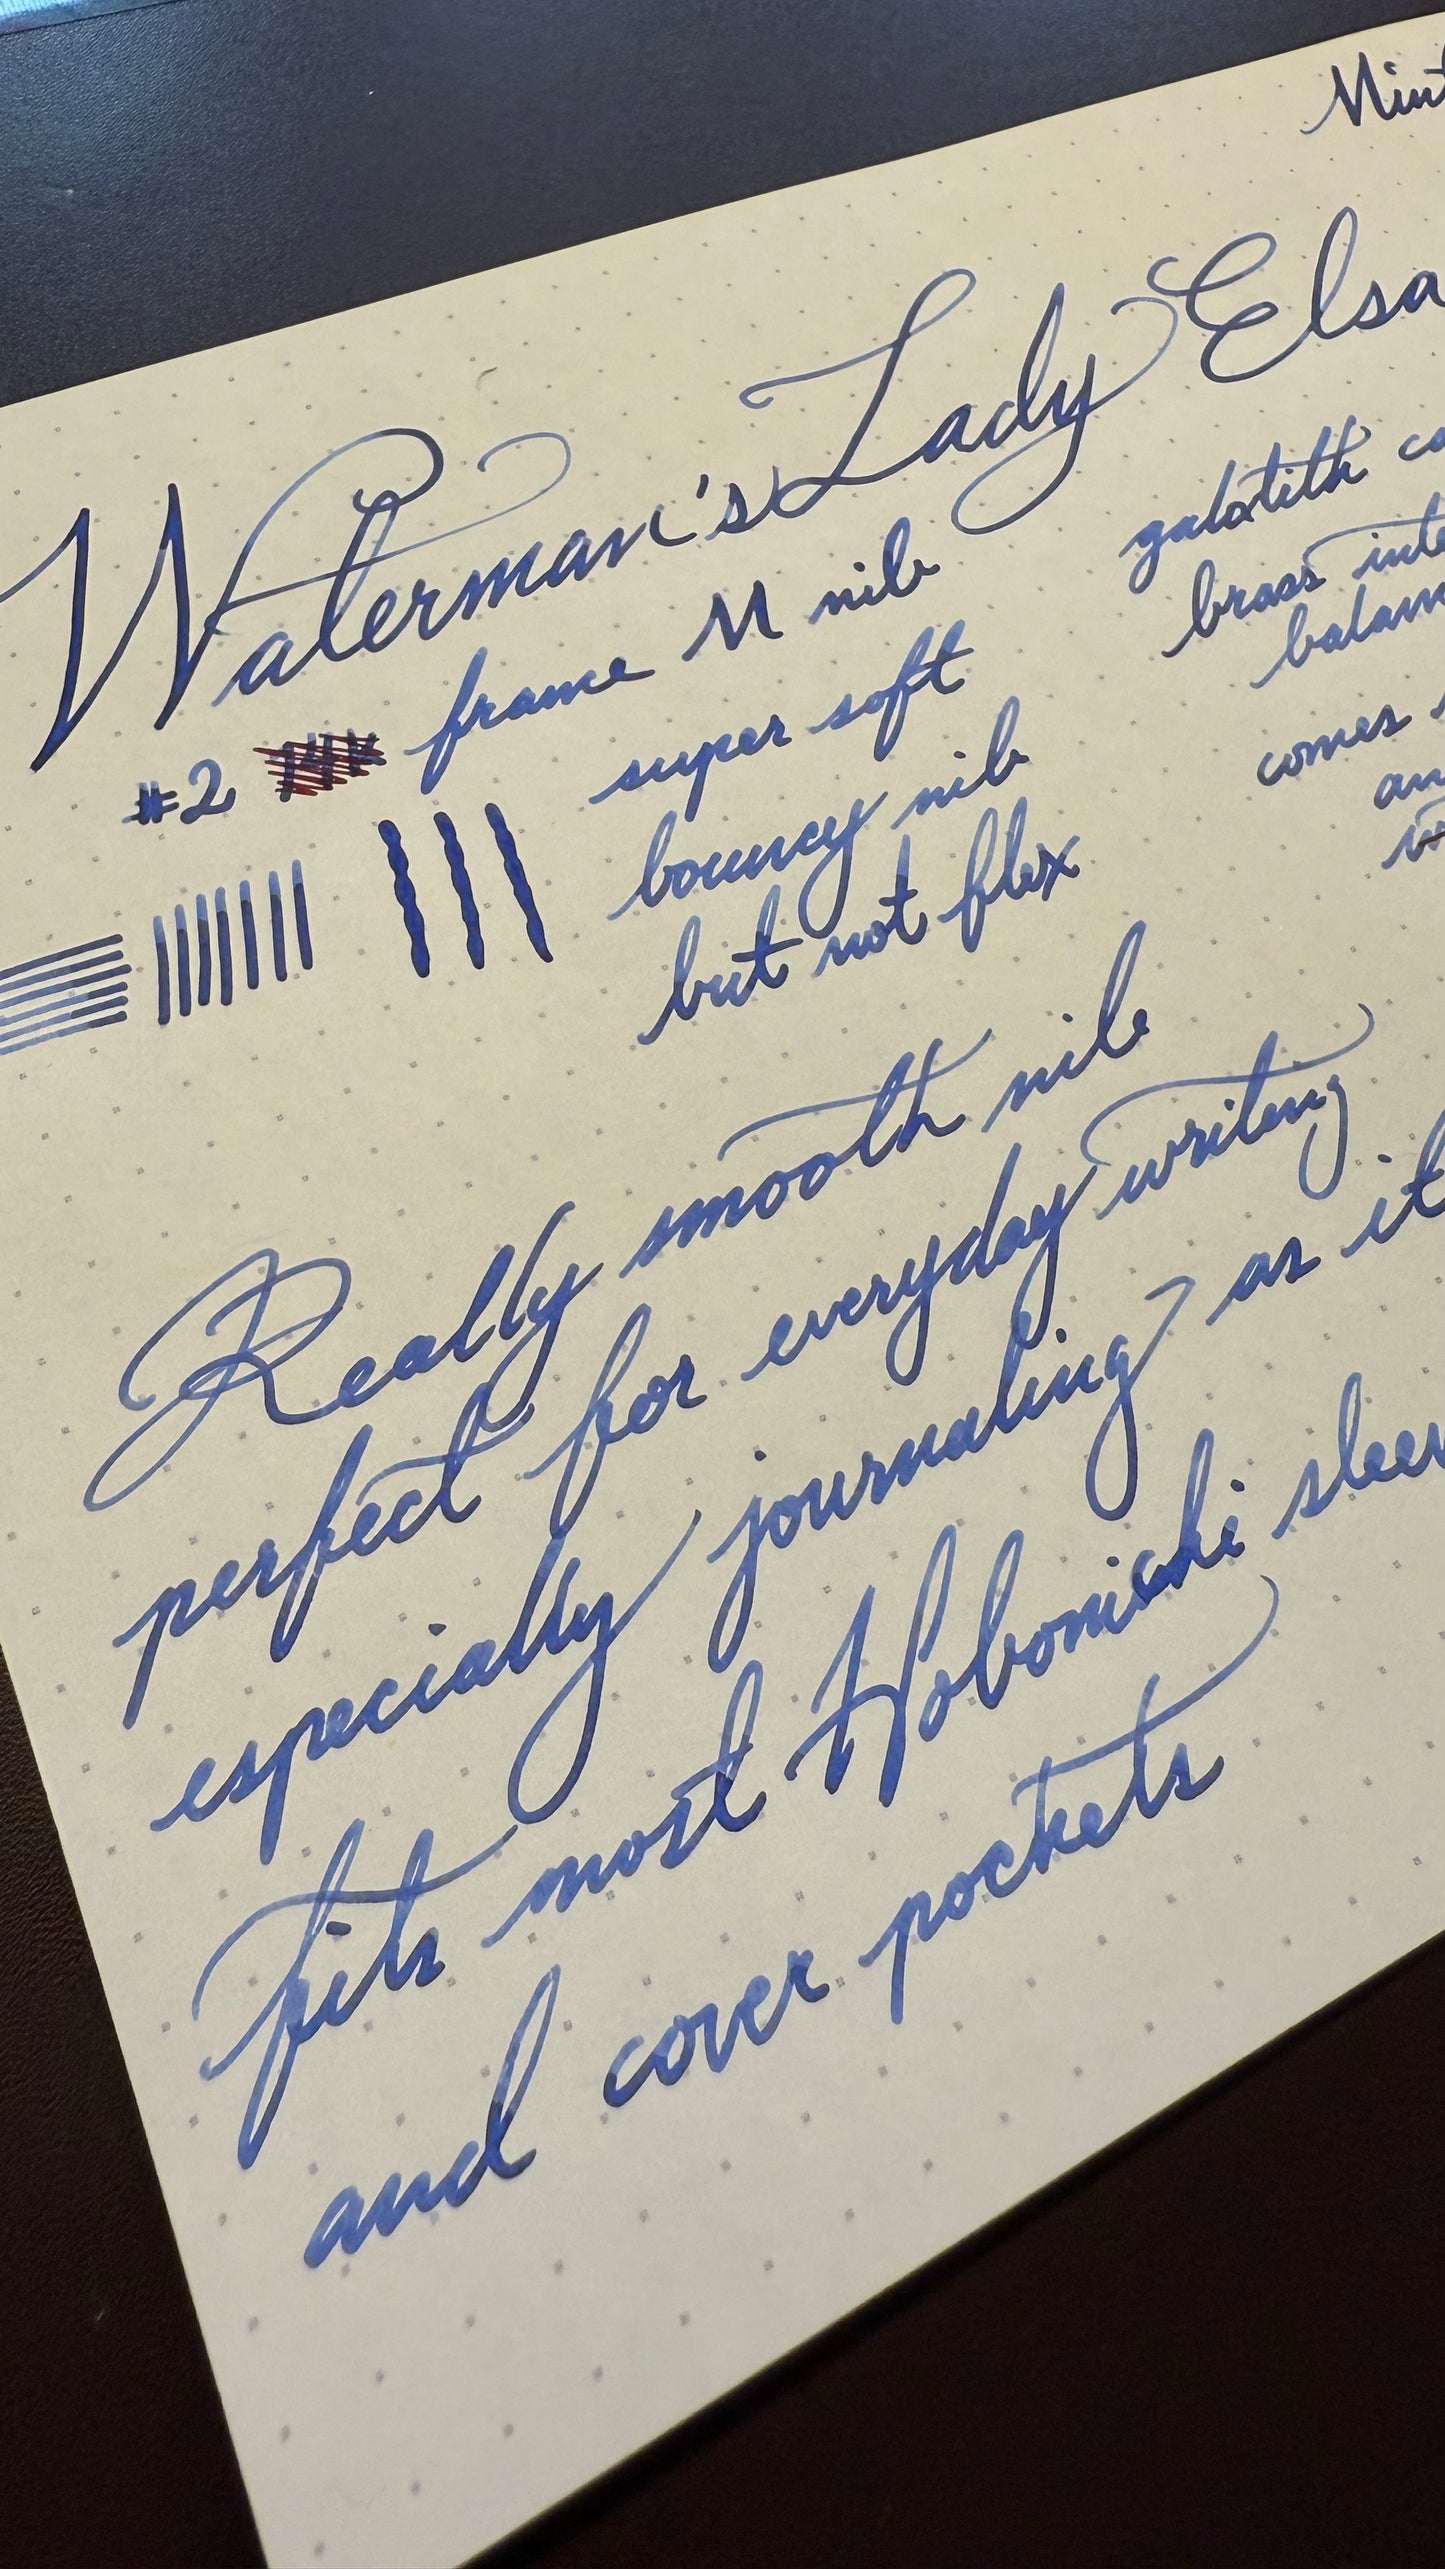 Mint
Waterman's Lady Elsa
#2 frame M nib
super soft
bouncy nib
but not flex
galatith ca
brass inte
balan
comes
an
Really smooth nib
perfect for everyday writing
especially journaling as it
fits most Hobonichi sleev
and cover pockets